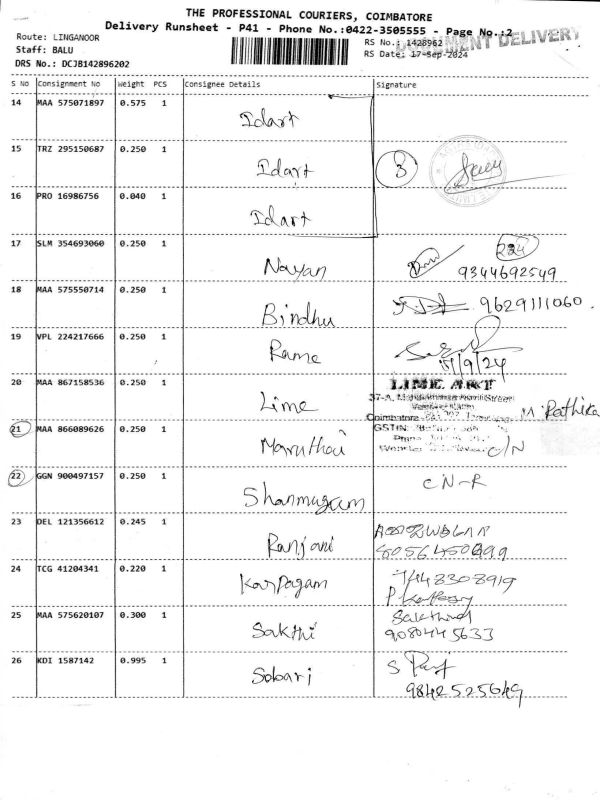 THE PROFESSIONAL COURIERS, COIMBATORE
Delivery Runsheet - P41 - Phone No.:0422-3505555 - Page No.:2
Route: LINGANOOR
RS No.: 1428962
DELIVERY
Staff: BALU
RS Date: 17-Sep-2024
DRS No.: DCJB142896202
S No Consignment No Weight PCS Consignee Details Signature
14 MAA 575071897 0.575 1 Idart
15 TRZ 295150687 0.250 1 Idart 3
16 PRO 16986756 0.040 1 Idart
17 SLM 354693060 0.250 1 Nayan 224
9344692549
18 MAA 575550714 0.250 1 Bindhu 9629111060.
19 VPL 224217666 0.250 1 Rame
17/9/24
20 MAA 867158536 0.250 1 Lime LIME ART
M. Rathika
21 MAA 866089626 0.250 1 Maruthai C/N
22 GGN 900497157 0.250 1 Shanmugam CN-R
23 DEL 121356612 0.245 1 Ranjani
24 TCG 41204341 0.220 1 Karpagam 7448308919
25 MAA 575620107 0.300 1 Sakthi
9080445633
26 KDI 1587142 0.995 1 Sobari
9842525649